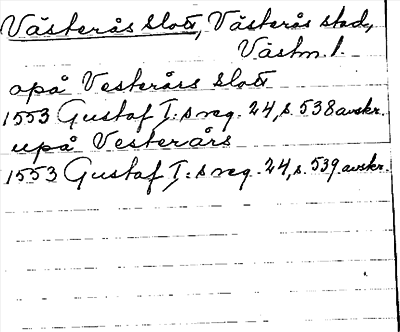 Västerås slott, Västerås stad,
Västm l.
opå Vesterårs slott
1553 Gustaf I:s reg. 24, s. 538 avskr.
upå Vesterårs
1553 Gustaf I:s reg. 24, s. 539 avskr.